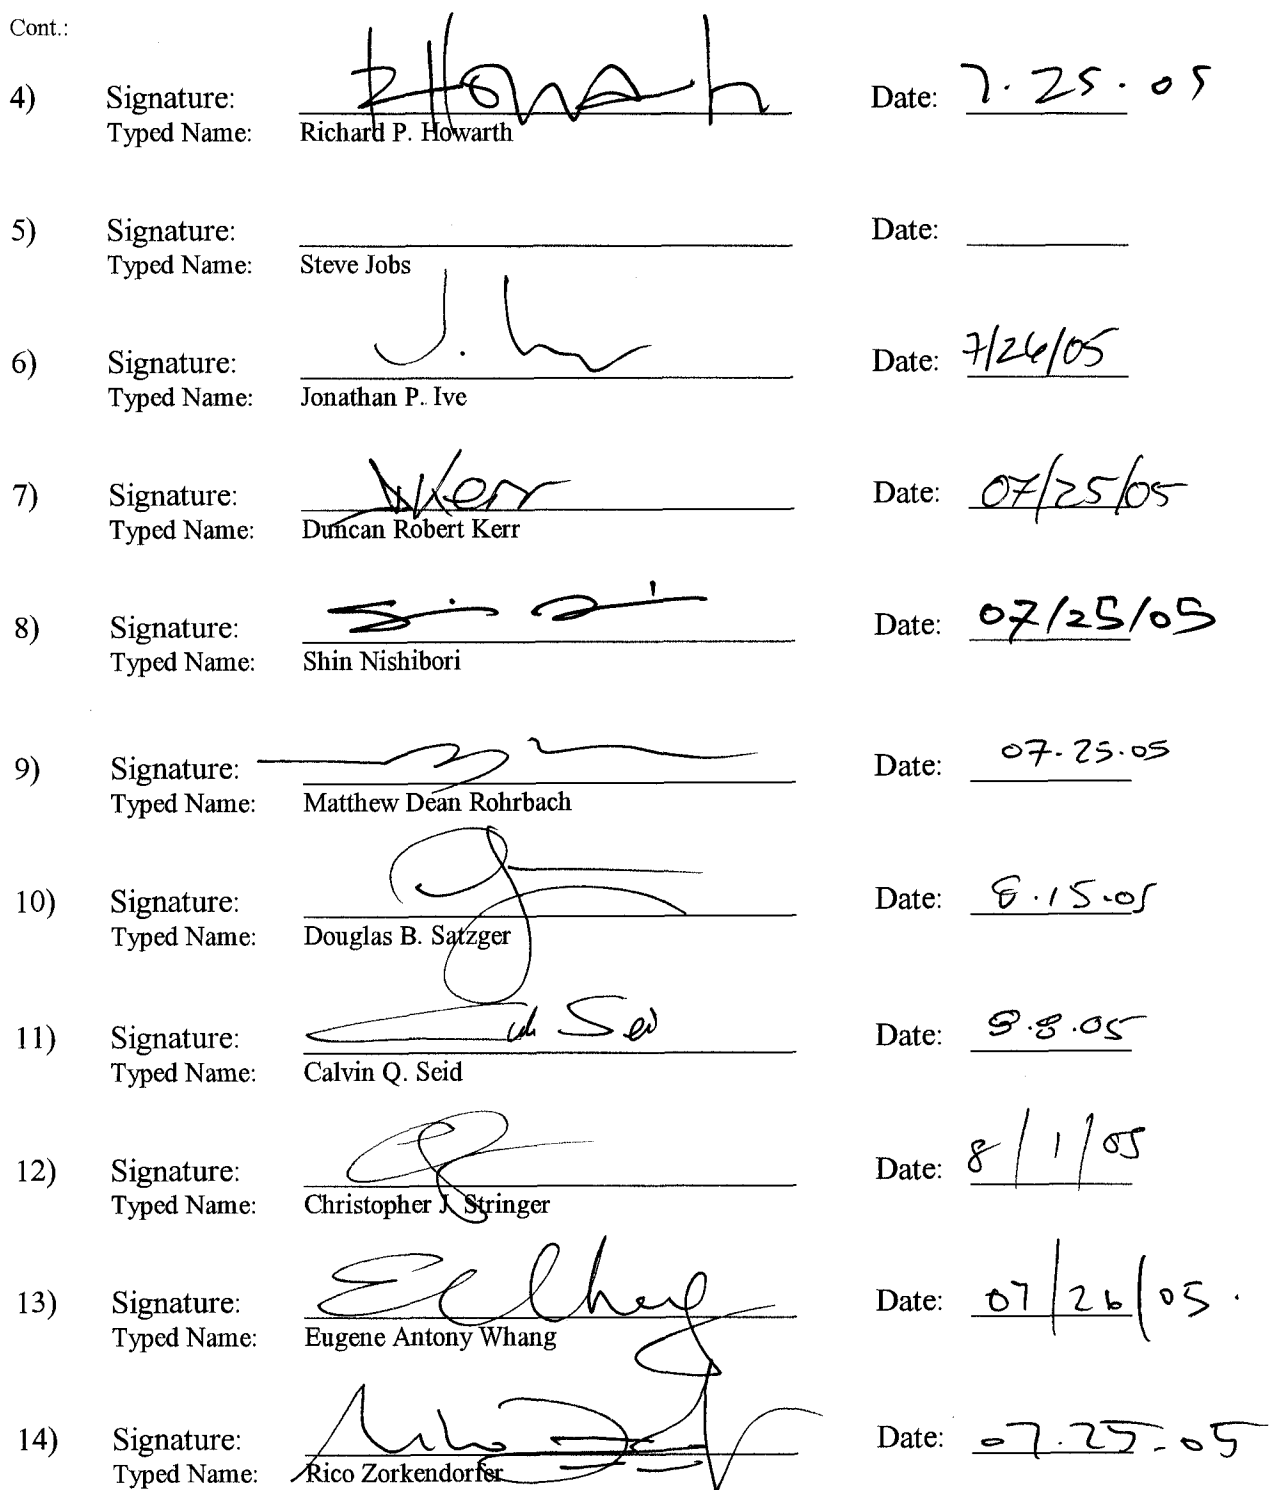 Cont.:
4) Signature: RHowarth Date: 7.25.05
Typed Name: Richard P. Howarth
5) Signature: Date:
Typed Name: Steve Jobs
6) Signature: Date: 7/26/05
Typed Name: Jonathan P. Ive
7) Signature: DKerr Date: 07/25/05
Typed Name: Duncan Robert Kerr
8) Signature: Date: 07/25/05
Typed Name: Shin Nishibori
9) Signature: Date: 07.25.05
Typed Name: Matthew Dean Rohrbach
10) Signature: Date: 8.15.05
Typed Name: Douglas B. Satzger
11) Signature: Date: 8.8.05
Typed Name: Calvin Q. Seid
12) Signature: Date: 8/1/05
Typed Name: Christopher J. Stringer
13) Signature: Date: 07/26/05.
Typed Name: Eugene Antony Whang
14) Signature: Date: 07.25.05
Typed Name: Rico Zorkendorfer